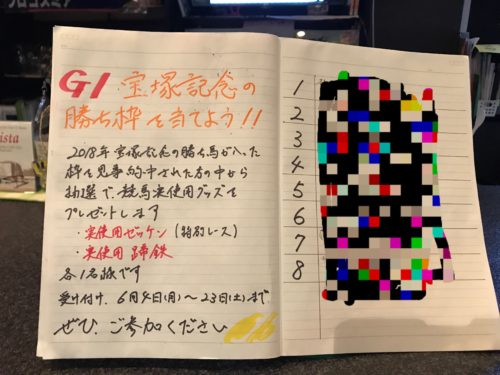 プロコスミア
ista
GI 宝塚記念の
勝ち枠を当てよう!!
2018年 宝塚記念の勝ち馬が入った
枠を見事的中された方の中から
抽選で、競馬実使用グッズを
プレゼントします
・実使用ゼッケン (特別レース)
・実使用 蹄鉄
各1名様です
受け付け、6月4日(月)〜23日(土)まで
ぜひ、ご参加ください
1
2
3
4
5
6
7
8